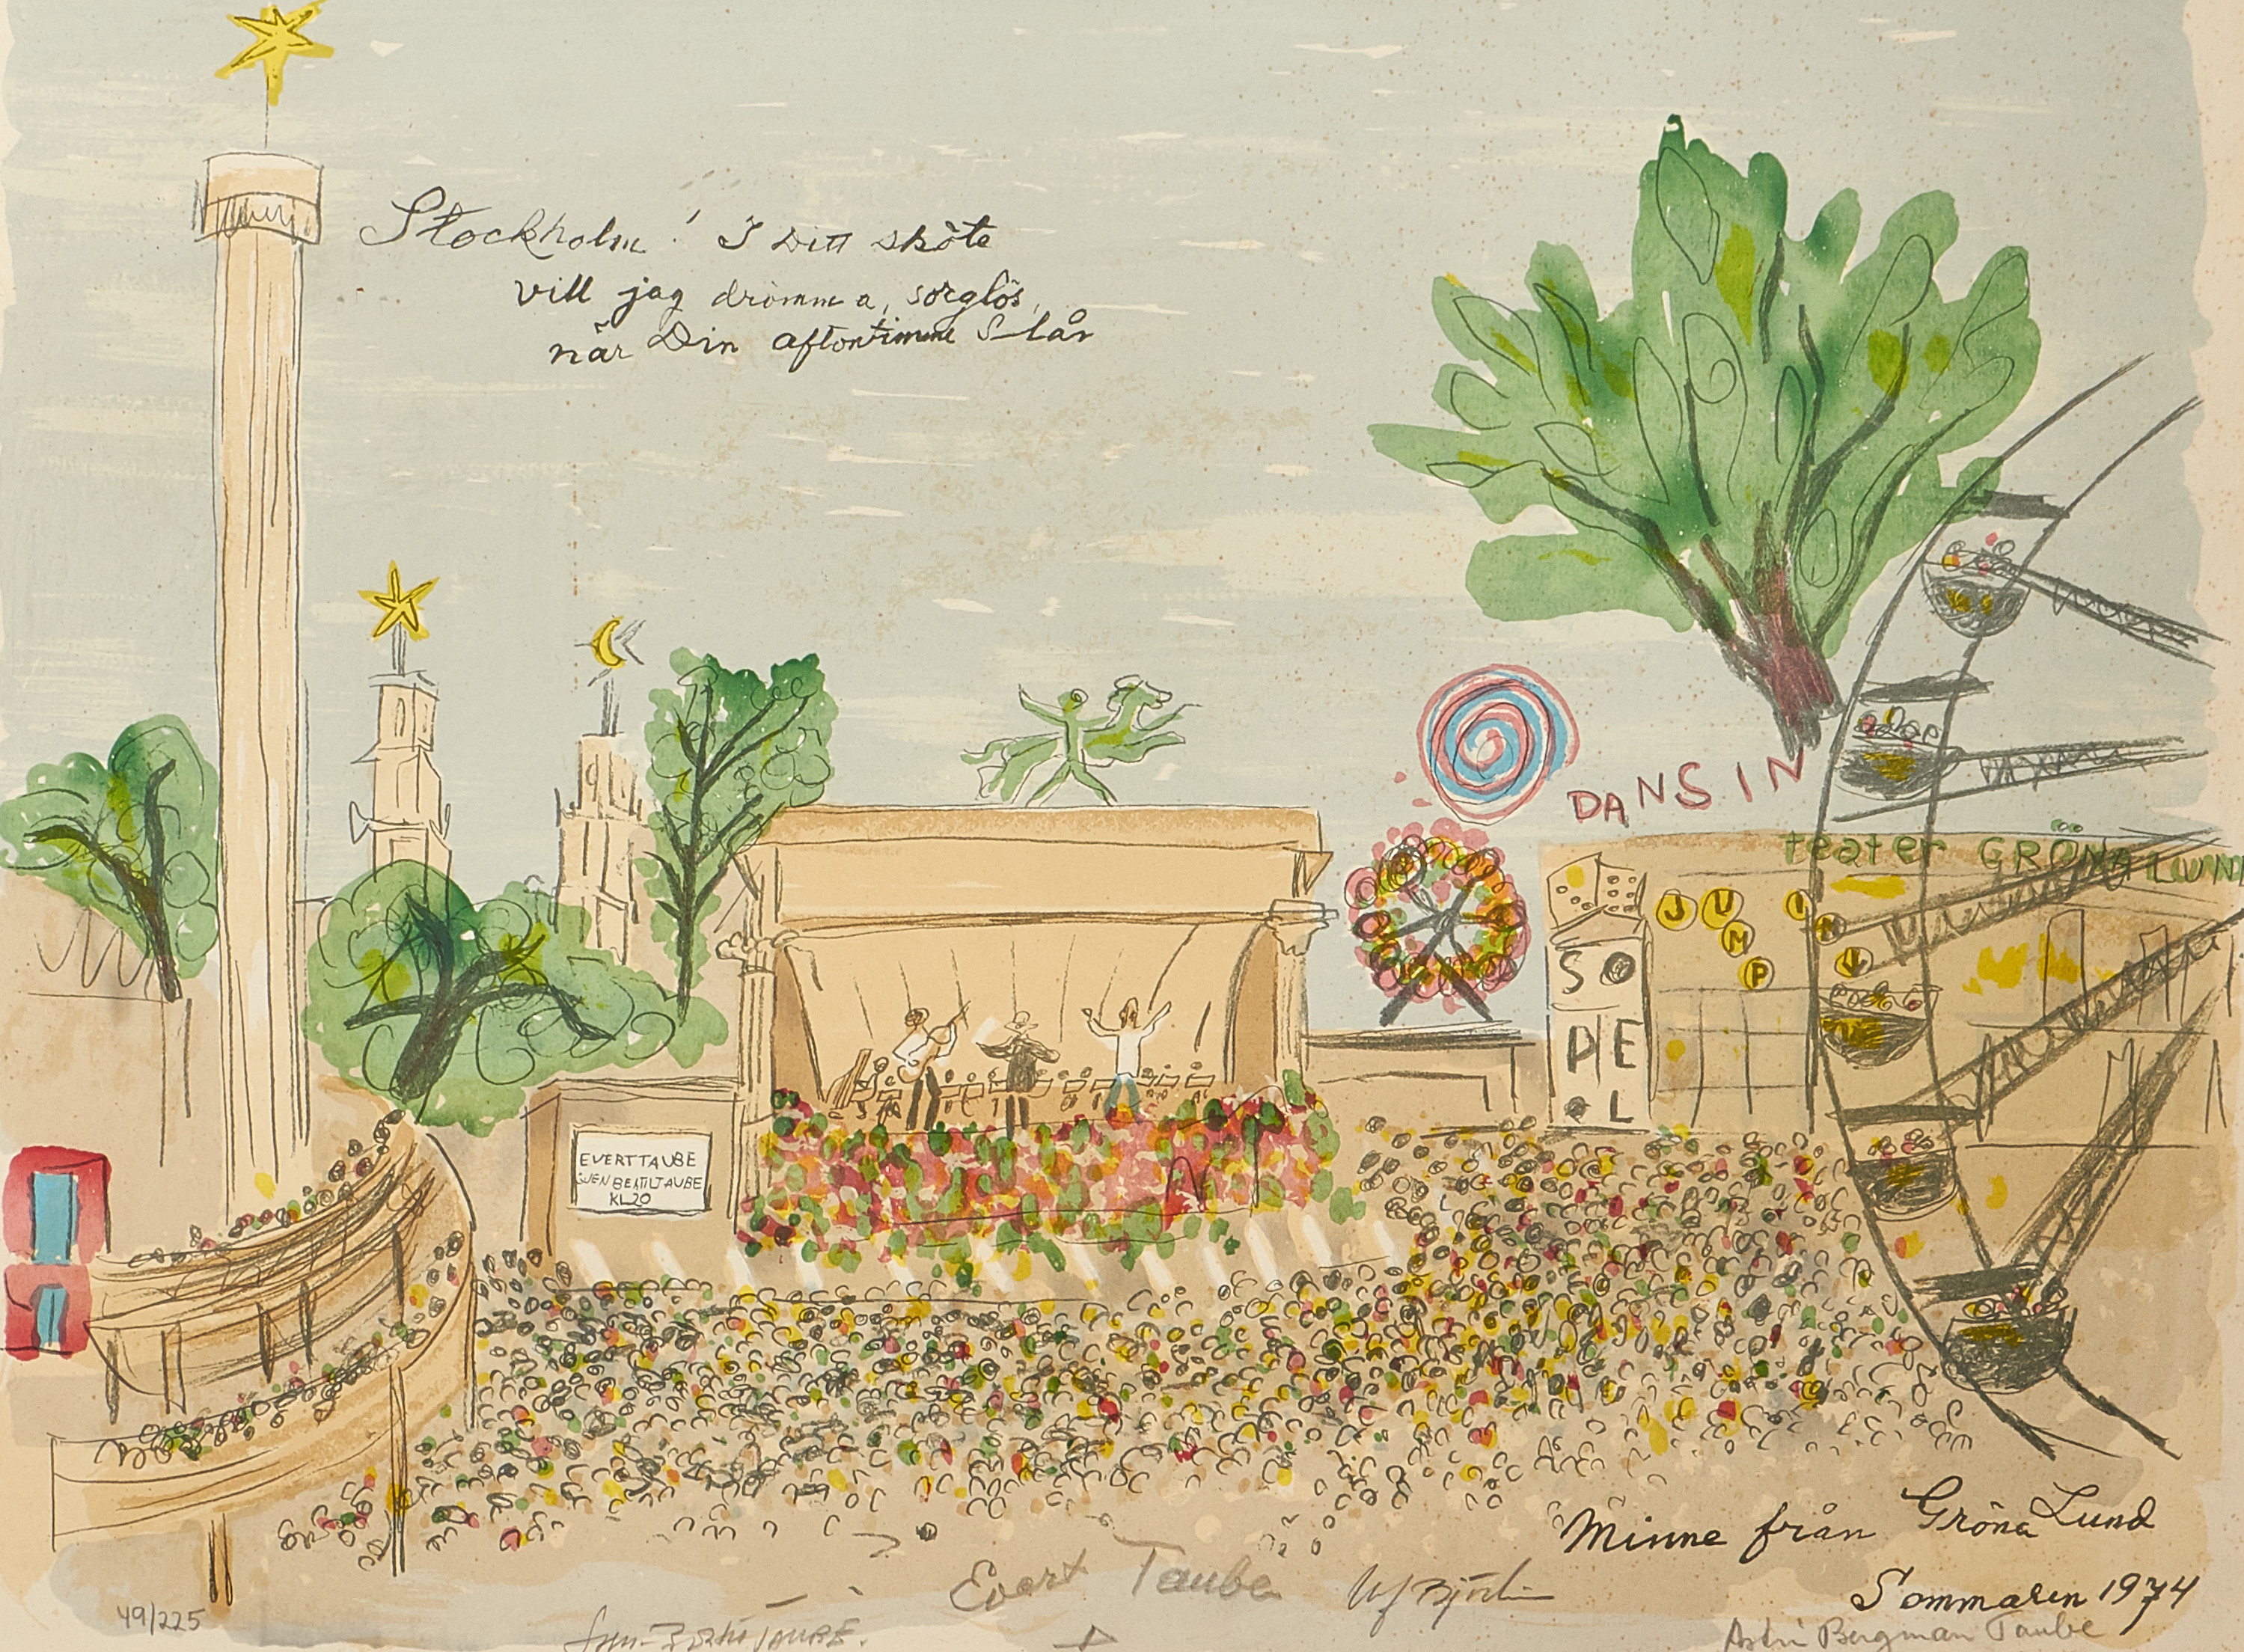 Stockholm! I Ditt sköte
vill jag drömma, sorglös,
när Din aftontimme slår
DANS IN
teater GRÖNA LUND
JUMP IN
SPEL
EVERT TAUBE
SVEN BERTIL TAUBE
KL 20
Minne från Gröna Lund
Sommaren 1974
Evert Taube
Ulf Björlin
Sven-Bertil TAUBE.
Astri Bergman Taube
49/225